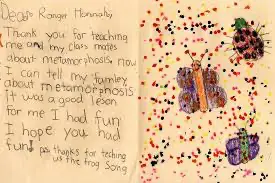 Dear Ranger
Thank you for teaching
me and my class mates
about metamorphosis. now
I can tell my famley
about metamorphosis
It was a good leson
for me I had fun
I hope you had
fun! ps: thanks for teching
us the frog song